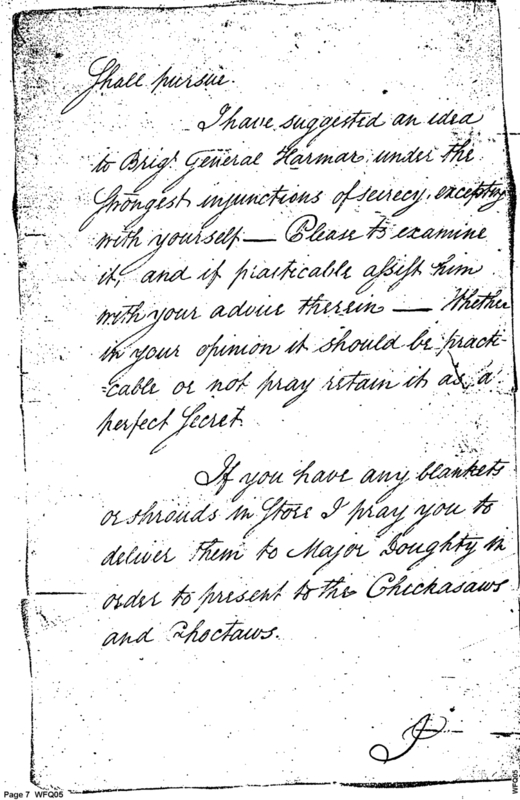 Shall pursue.
I have suggested an idea
to Brigr. General Harmar under the
strongest injunctions of secrecy, excepting
with yourself — Please to examine
it, and if practicable assist him
with your advice therein — Whether
in your opinion it should be practi-
-cable or not pray retain it as a
perfect Secret.
If you have any blankets
or shrouds in Store I pray you to
deliver them to Major Doughty in
order to present to the Checkasaws
and Choctaws.
Page 7 WFQ05
WFQ05